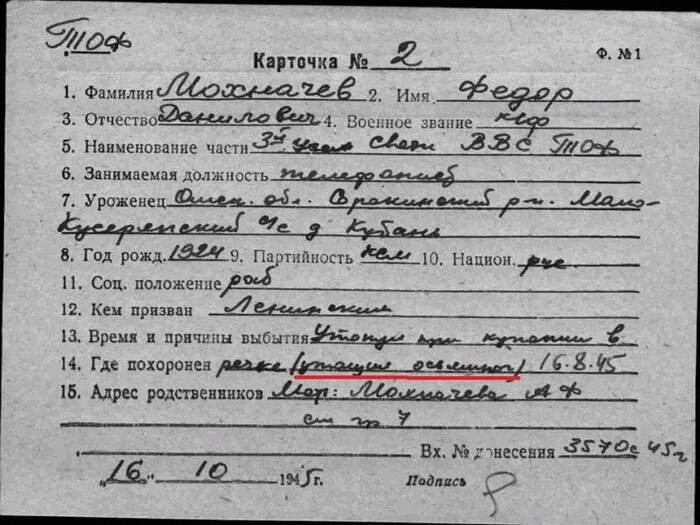 ТОФ
Карточка № 2 Ф. №1
1. Фамилия Мохначев 2. Имя Федор
3. Отчество Данилович 4. Военное звание кнф
5. Наименование части 3й узел связи ВВС ТОФ
6. Занимаемая должность телефонист
7. Уроженец Омск. обл. р-н. Мало-
Кусеряпский с/с д Кубань
8. Год рожд. 1924 9. Партийность ксм 10. Национ. рус.
11. Соц. положение раб
12. Кем призван Ленинским
13. Время и причины выбытия Утонул при купании в
14. Где похоронен речке (утащил осьминог) 16.8.45
15. Адрес родственников Мар: Мохначева А Ф
ст гр 7
Вх. № донесения 3570с 45г
"16" 10 1945г. Подпись